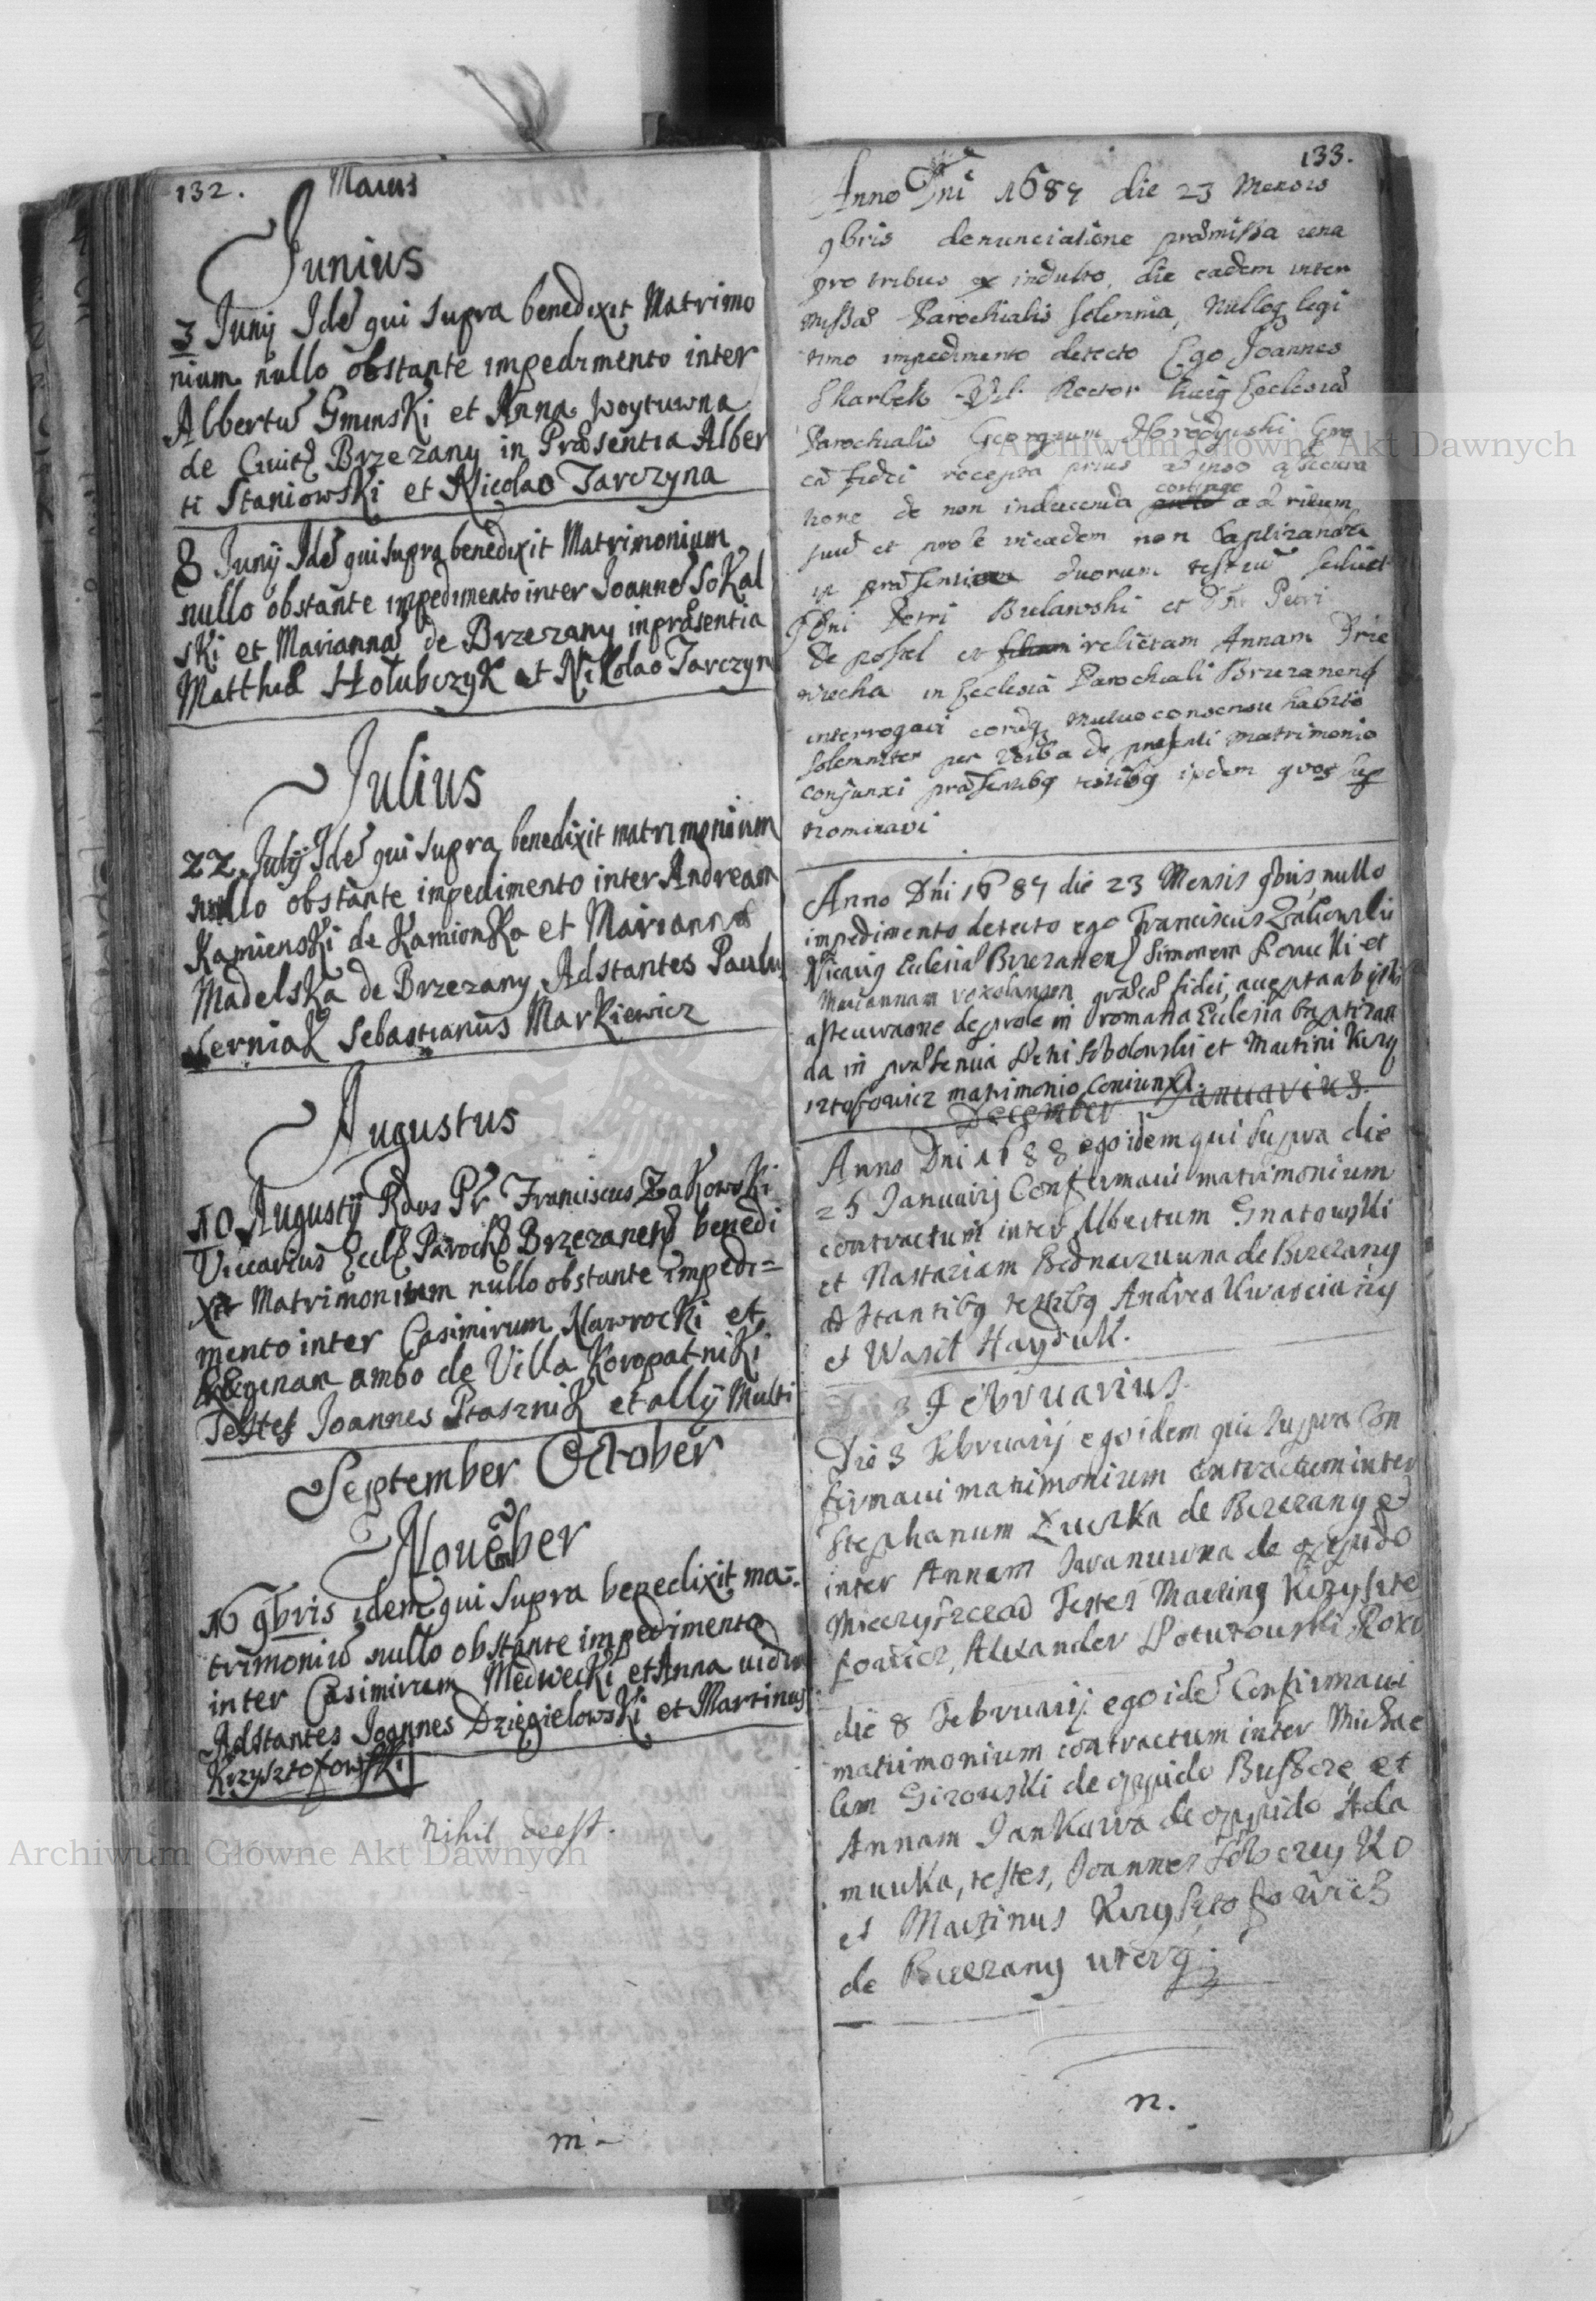 132.
Maius
Junius
3 Junij Idē qui supra benedixit Matrimo
nium nullo obstante impedimento inter
Albertū Gminski et Anna Woytuwna
de Ciuit Brzezany in Præsentia Alber
ti Staniowski et Nicolao Tarczyna
8 Junij Idē qui supra benedixit Matrimonium
nullo obstante impedimento inter Joannē Sokal
ski et Mariannā de Brzezany in præsentia
Matthiæ Hołubczyk et Nikolao Tarczyn
Julius
22 Julij Idē qui supra benedixit matrimonium
nullo obstante impedimento inter Andream
Kamienski de Kamionka et Marianna
Madelska de Brzezany Adstantes Paulu
Sebastianus Markiewicz
Augustus
10 Augustij Rdus Pr Franciscus Zakowski
Viccarius Eccl Paroch Brzezanen benedi
xit Matrimonium nullo obstante impedi=
mento inter Casimirum Nawrocki et
Reginam ambo de Villa Koropatniki
Testes Joannes Ptasznik et allij Multi
September October
Nouēber
16 9bris idem qui supra benedixit ma-
trimoniū nullo obstante impedimento
inter Casimirum Medwecki et Anna uidua
Adstantes Joannes Dzięgielowski et Martinus
Krzysztofowski
nihil deest.
m -
133.
Anno Dni 1687 die 23 Mensis
9bris denunciatione præmissa una
pro tribus ex indulto, die eadem inter
missæ Parochialis solemnia, nulloq legi
timo impedimento detecto Ego Joannes
Skarbek Rector huig Ecclesiæ
Parochialis Georgium Gre
cæ fidei recepta prius ab ipso assecura
tione de non inducenda coniuge ad ritum
suū et prole in eadem non baptizanda
in præsentia duorum testiū scilicet
Dni Petri Bulawski et Dni Petri
De possel et relictam Annam
in Ecclesia Parochiali Brzezanens
interrogavi eorūq mutuo consensu habito
solemniter per verba de præsenti matrimonio
conjunxi præsentibq testibq ijsdem quos sup
nominavi
Anno Dni 1687 die 23 Mensis 9bris, nullo
impedimento detecto ego Franciscus Zakowski
Vicariq Eclesiæ Brzezanen Simonem et
Mariannam græcæ fidei, accepta ab ijsdē
de prole in romana Eclesia baptizan
da in præsentia Petri Sobolowski et Martini Krzy
sztofowicz matrimonio coniunxi.
December Januarius.
Anno Dni 1688 ego idem qui supra die
25 Januarij Confirmaui matrimonium
contractum inter Albertum Gnatowski
et Nastaziam Bednarzuwna de Brzezany
adstantibq testibq Andrea Kwasciany
et Wasil Hayduk.
Februarius.
Die 3 Februarij ego idem qui supra Con
firmaui matrimonium contractum inter
Stephanum de Brzezany et
inter Annam Iwanuwna de oppido
Mieczyszczead Testes Martinq Krzyszto
fowicz, Alexander Poturowski
die 8 Februarij ego idē Confirmaui
matrimonium contractum inter Michae
lem Girowski de oppido Buszcze et
Annam Jankuwa de oppido Ada
muwka, testes, Joannes Ko
et Martinus Krzysztofowicz
de Brzezany uterq.
n.
Archiwum Główne Akt Dawnych
Archiwum Główne Akt Dawnych